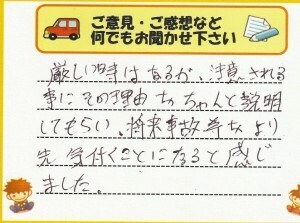 ご意見・ご感想など
何でもお聞かせ下さい
厳しい時はあるが、注意される
事にその理由もちゃんと説明
してもらい、将来事故等も より
先 気付くことになると感じ
ました。